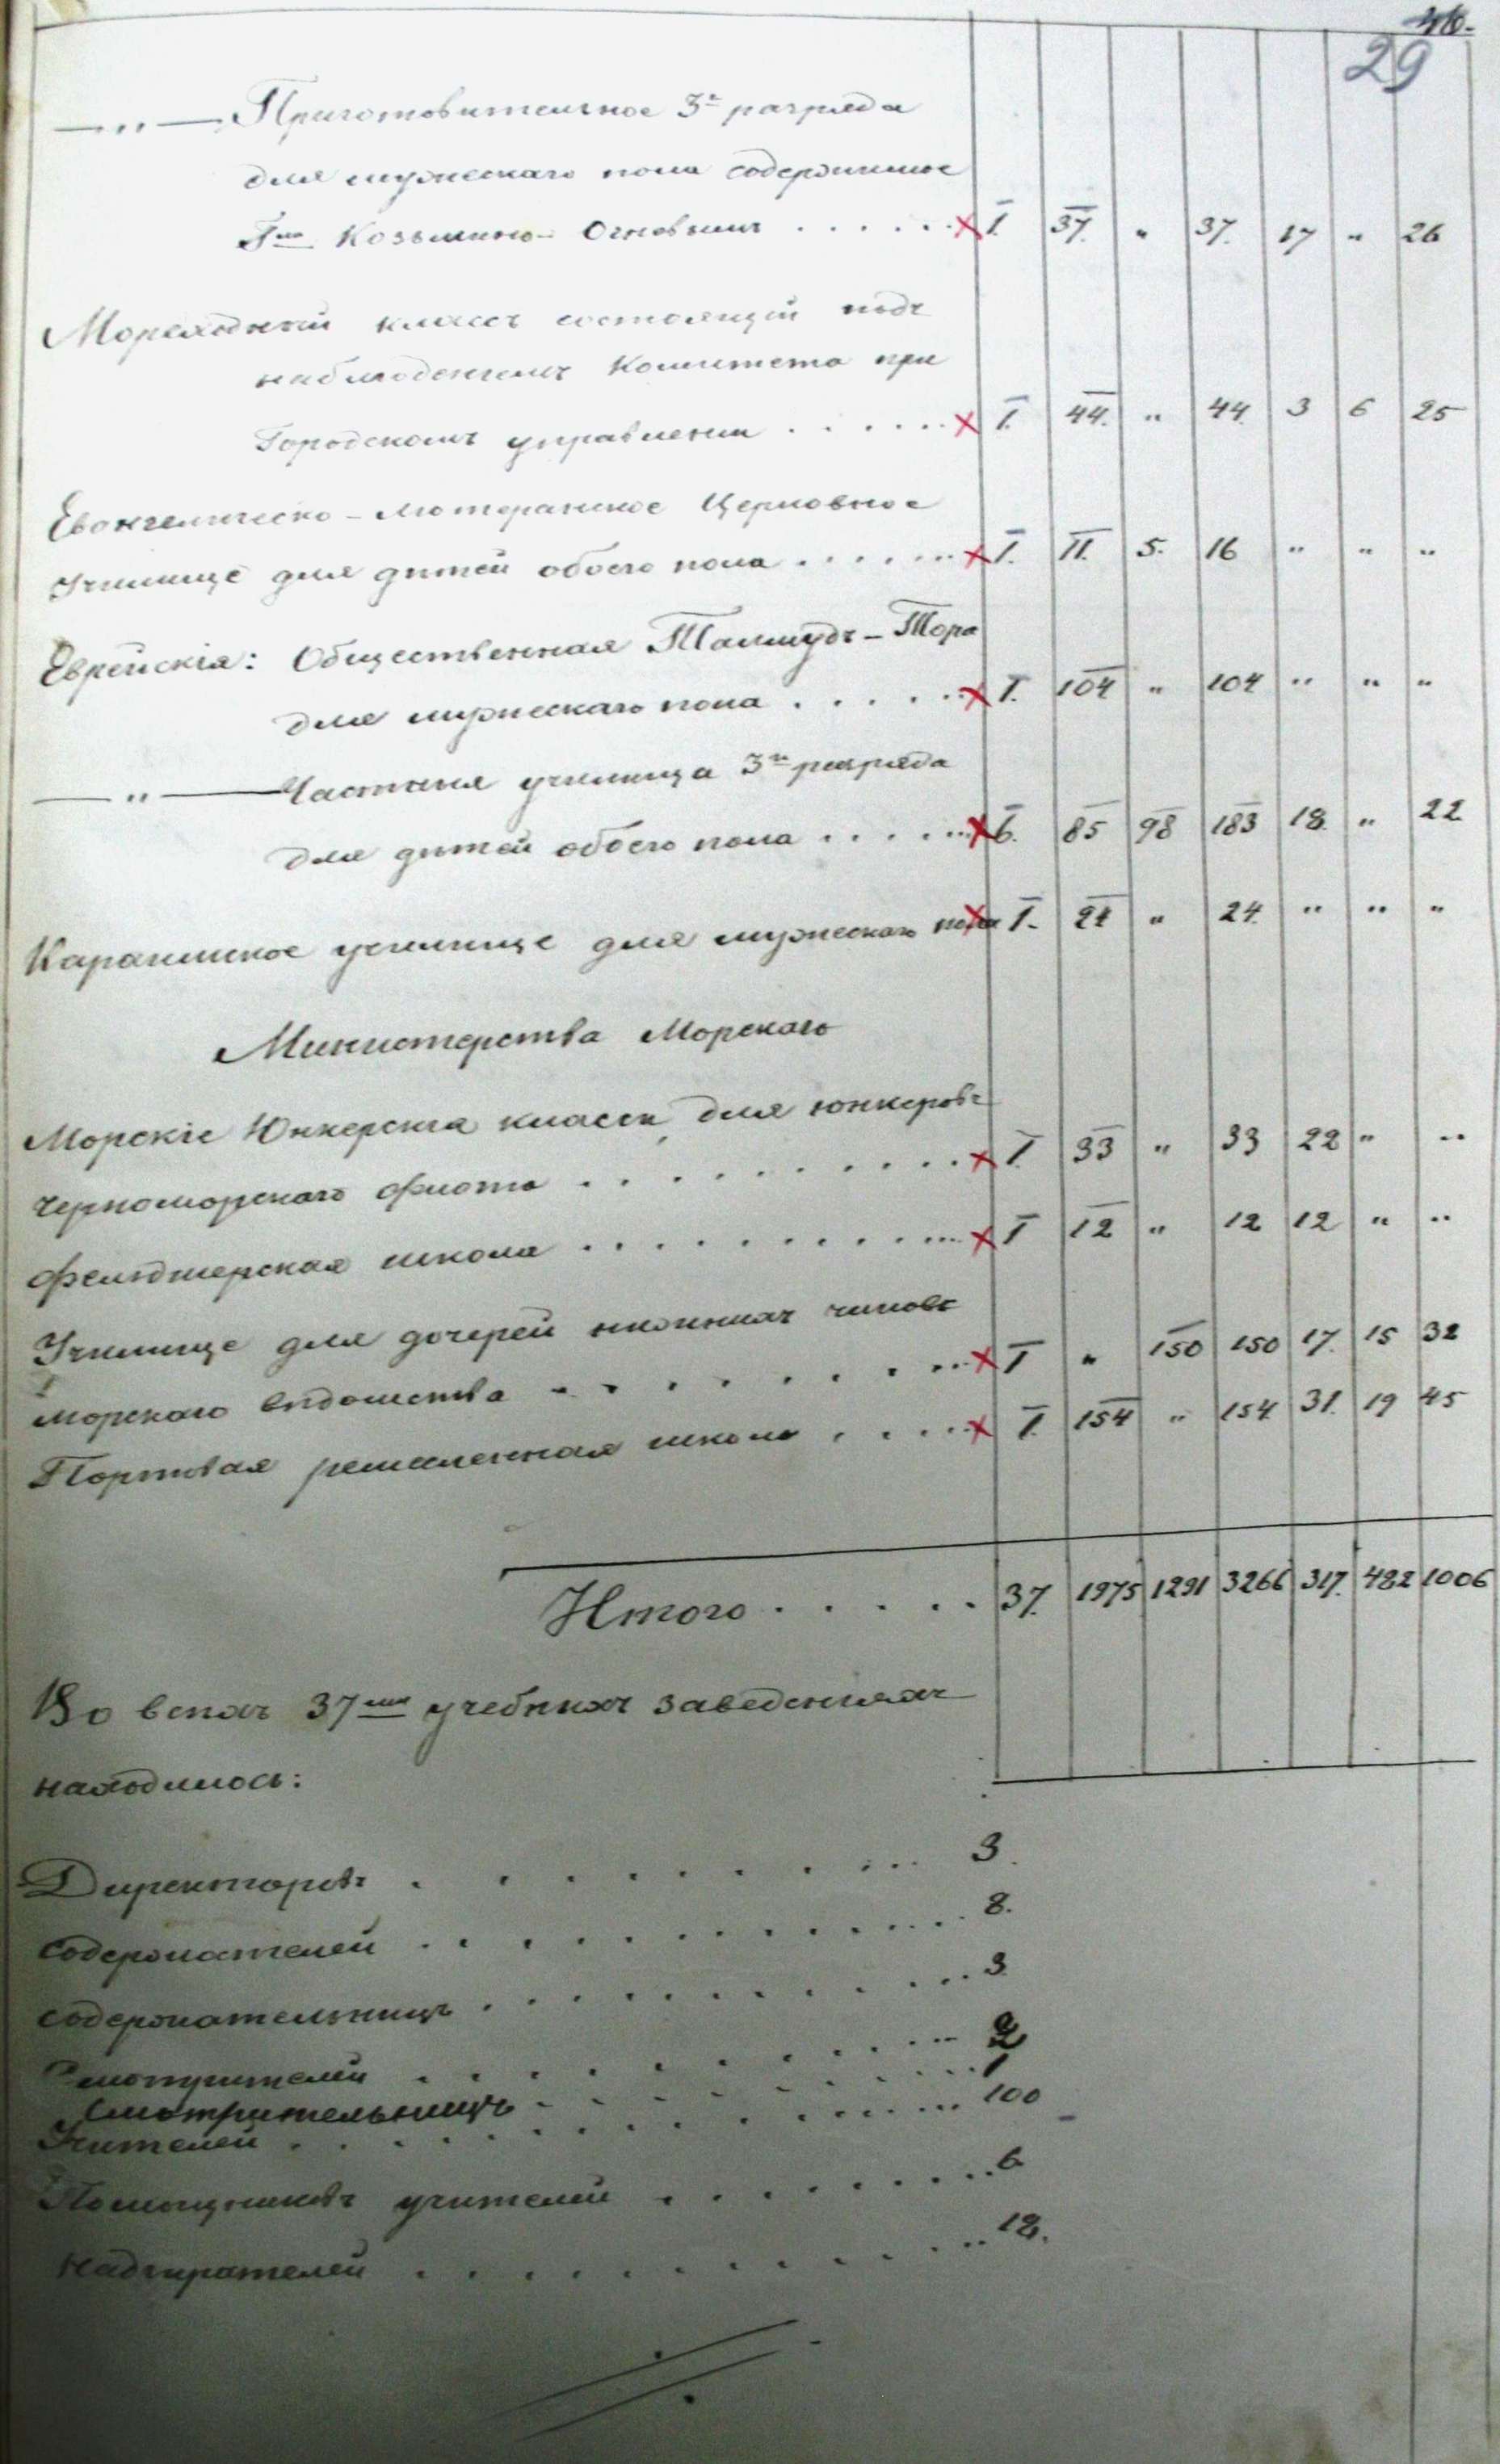 46.
29
— „ — Приготовительное 3го разряда
для мужескаго пола содержимое
Козьмино- . . . . . . I. 37. „ 37. 17 „ 26
Мореходный классъ состоящій подъ
наблюденіемъ Комитета при
Городскомъ управленіи . . . . . . I. 44. „ 44. 3 6 25
Евангелическо-Лютеранское Церковное
Училище для дѣтей обоего пола . . . . . . . I. 11. 5. 16 „ „ „
Еврейскія: Общественная Талмудъ-Тора
для мужескаго пола . . . . . . I. 104 „ 104 „ „ „
— „ — Частныя училища 3го разряда
для дѣтей обоего пола . . . . . . . 6. 85 98 183 18. „ 22
Караимское училище для мужескаго пола I. 24 „ 24. „ „ „
Министерства Морскаго
Морскіе Юнкерскіа классы для юнкеровъ
Черноморскаго флота . . . . . . . . . I 33 „ 33 22 „ „
Фельдшерская школа . . . . . . . . . . . I 12 „ 12 12 „ „
Училище для дочерей нижнихъ чиновъ
морскаго вѣдомства . . . . . . . . . I „ 150 150 17. 15 32
Портовая ремесленная школа . . . . . I. 154 „ 154 31. 19 45
Итого . . . . . 37. 1975 1291 3266 317. 482 1006
Во всѣхъ 37ми учебныхъ заведеніяхъ
находилось:
Директоровъ . . . . . . . . . . 3.
Содержателей . . . . . . . . . . . . 8.
Содержательницъ . . . . . . . . . . . 3
Смотрителей . . . . . . . . . 2
Смотрительницъ . . . . . . . . 1
Учителей . . . . . . . . . . . 100
Помощниковъ учителей . . . . . . . . 6
Надзирателей . . . . . . . . . . . 12.